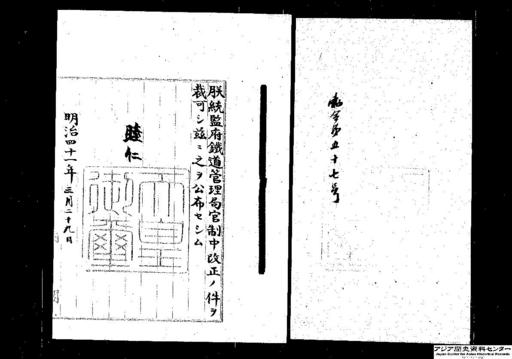 勅令第五十七号
朕統監府鐵道管理局官制中改正ノ件ヲ
裁可シ茲ニ之ヲ公布セシム
睦仁
天皇
御璽
明治四十一年三月二十九日
アジア歴史資料センター
Japan Center for Asian Historical Records